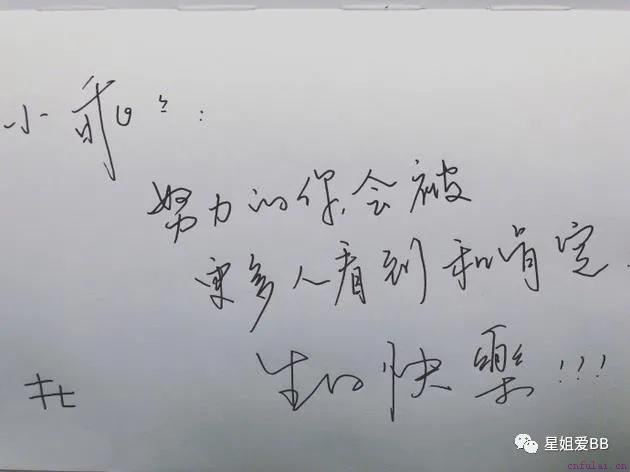 小乖々:
努力的你,会被
更多人看到和肯定.
生日快樂!!!
星姐爱BB
cnfulai.cn